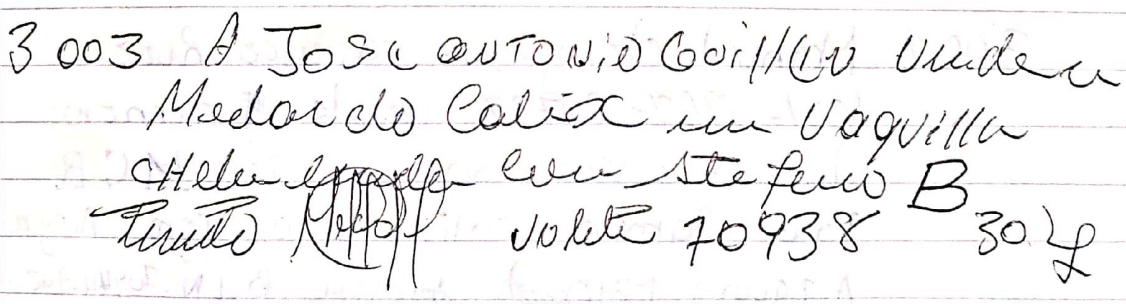 3003 A Jose Antonio Guillen vende a
Medardo Calix un Vaquilla
chele con este fierro B
volita 70938 30 Lp